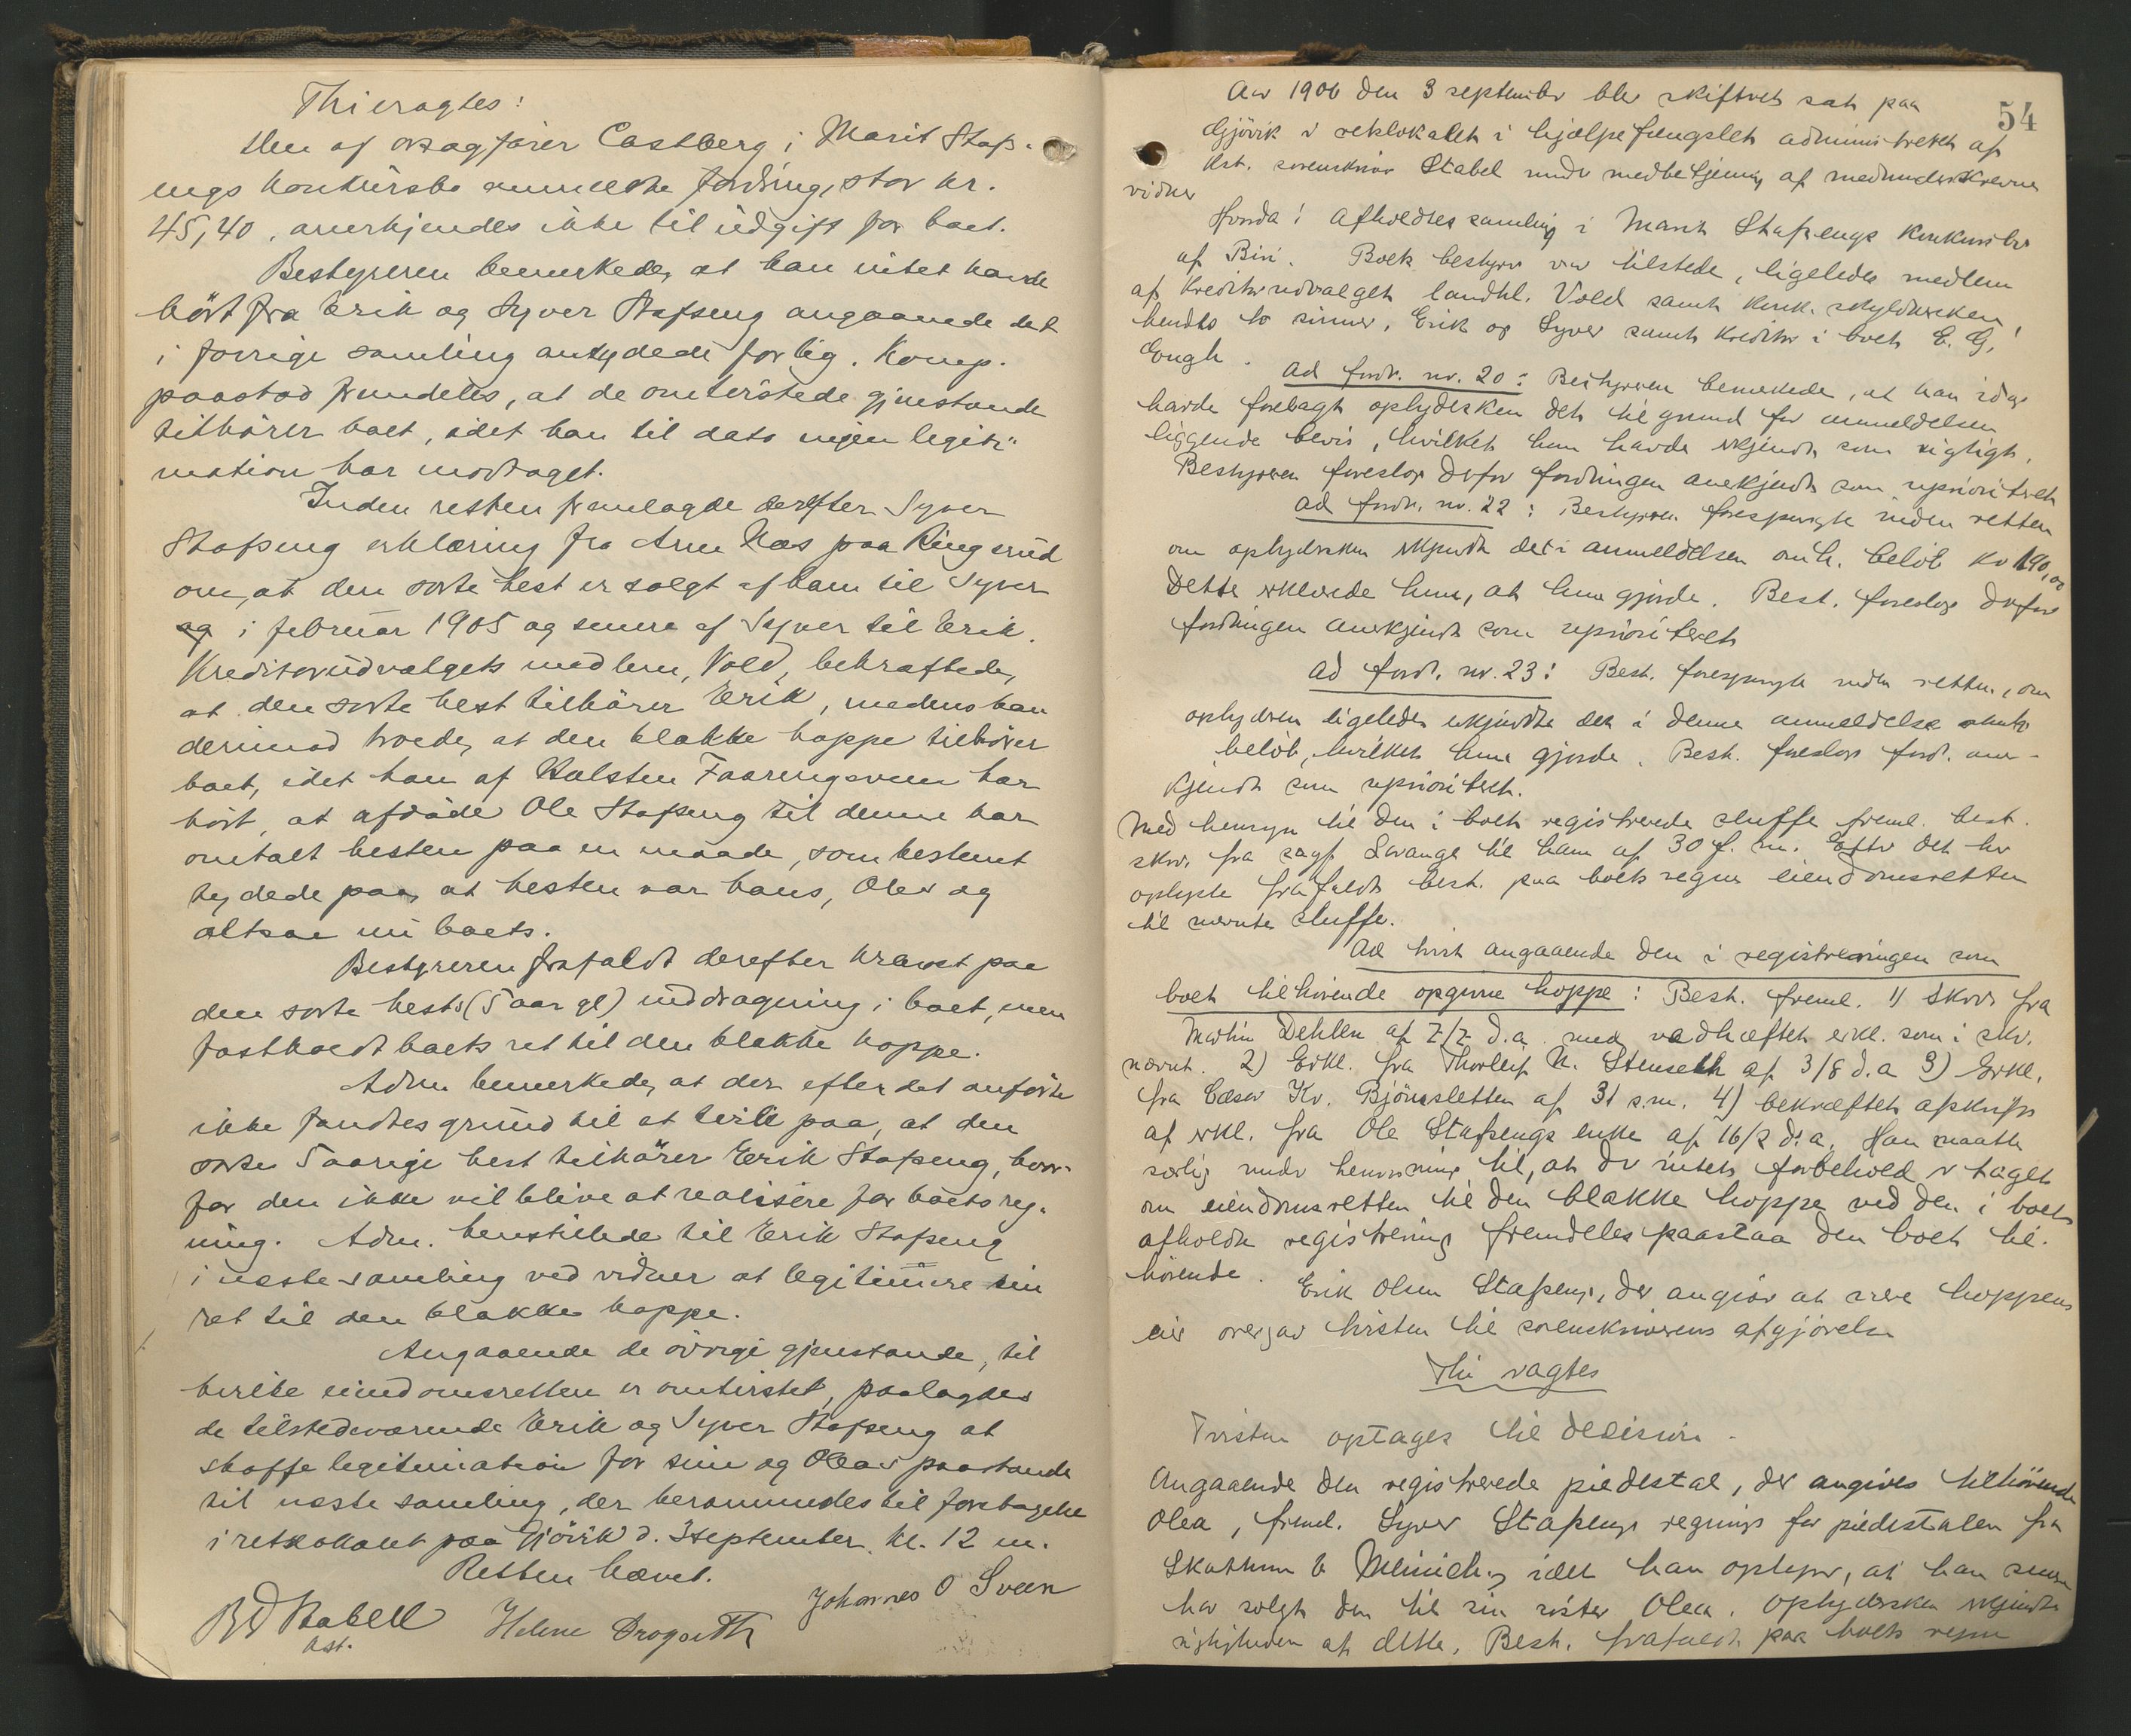 Thi eragtes:
Den af o.r.sagfører Castberg i Marit Stafs-
engs konkursbo anmeldte fordring, stor kr.
45,40, anerkjendes ikke til udgift for boet.
Bestyreren bemerkede, at han intet havde
hørt fra Erik og Syver Stafseng angaaende det
i forrige samling antydede forlig. Komp.
paastod fremdeles, at de omtvistede gjenstande
tilhører boet, idet han til dato ingen legiti-
mation har modtaget.
Inden retten fremlagde derefter Syver
Stafseng erklæring fra Arne Næs paa Ringerud
om, at den sorte hest er solgt af ham til Syver
og i februar 1905 og senere af Syver til Erik.
Kreditorudvalgets medlem, Vold, bekræftede,
at den sorte hest tilhører Erik, medens han
derimod troede, at den blakke hoppe tilhører
boet, idet han af Halsten Faarengsveen har
hørt, at afdøde Ole Stafseng til denne har
omtalt hesten paa en maade, som bestemt
tydede paa, at hesten var hans, Oles og
altsaa nu boets.
Bestyreren frafaldt derefter kravet paa
den sorte hests (5 aar gl) inddragning i boet, men
fastholdt boets ret til den blakke hoppe.
Adm bemerkede, at der efter det anførte
ikke fandtes grund til at tvile paa, at den
sorte 5 aarige hest tilhører Erik Stafseng, hvor-
for den ikke vil blive at realisere for boets reg-
ning. Adm. henstillede til Erik Stafseng
i næste samling ved vidner at legitimere sin
ret til den blakke hoppe.
Angaaende de øvrige gjenstande, til
hvilke eiendomsretten er omtvistet, paalagdes
de tilstedeværende Erik og Syver Stafseng at
skaffe legitimation for sine og Oleas paastande
til næste samling, der berammedes til foretagelse
i retslokalet paa Gjøvik d. 3 september kl. 12 m.
Retten hævet.
Stabell Helene Johannes O Sveen
kst.
54
Aar 1906 den 3 september blev skifteret sat paa
Gjøvik i retslokalet i hjælpefængslet administreret af
kst. sorenskriver Stabel under medbetjening af medunderskrevne
vidner
Hvorda! Afholdtes samling i Marit Stafsengs konkursbo
af Biri. Boets bestyrer var tilstede, ligeledes medlem
af kreditorudvalget landhl. Vold samt konk. skyldnersken,
hendes to sønner, Erik og Syver samt kreditor i boet E. G.
Engh.
Ad fordr. nr. 20: Bestyreren bemerkede, at han idag
havde forelagt oplydersken det til grund for anmeldelsen
liggende bevis, hvilket hun havde erkjendt som rigtigt.
Bestyreren foreslog derfor fordringen anerkjendt som uprioriteret
ad fordr. nr. 22: Bestyreren forespurgte inden retten
om oplydersken erkjendte det i anmeldelsen omh. beløb kr 190,00
Dette erklærede hun, at hun gjorde. Best. foreslog derfor
fordringen anerkjendt som uprioriteret
ad ford. nr. 23: Best. forespurgte inden retten, om
oplydersken ligeledes erkjendte det i denne anmeldelse omh.
beløb, hvilket hun gjorde. Best. foreslog ford. aner-
kjendt som uprioriteret.
Med hensyn til den i boet registrerede sluffe freml. best.
skriv. fra sagf. Lavange til ham af 30 f. m. Efter det her
oplyste frafaldt best. paa boets vegne eiendomsretten
til nævnte sluffe.
Ad tvist angaaende den i registreringen som
boet tilhørende opgivne hoppe: Best. freml. 1) skriv fra
Martin Dehlen af 7/7 d.a. med vedhæftet erkl. som i skr.
nævnt. 2) Erkl. fra Thorleif N. Stenseth af 3/8 d.a 3) Erkl.
fra Kr. Bjørnsletten af 31 s.m. 4) bekræftet afskrift
af erkl. fra Ole Stafsengs enke af 16/2 d.a. Han maatte
særlig under henvisning til, at der intet forbehold er taget
om eiendomsretten til den blakke hoppe ved den i boet
afholdte registrering fremdeles paastaa den boet til-
hørende.
Erik Olsen Stafseng, der angiver at være hoppens
eier overgav tvisten til sorenskriverens afgjørelse
Thi eragtes
Tvisten optages til decision.
Angaaende den registrerede piedestal, der angives tilhørende
Olea, freml. Syver Stafseng regning for piedestalen fra
Skattum & Minich, idet han oplyser, at han senere
har solgt den til sin søster Olea. Oplydersken erkjendte
rigtigheden af dette. Best. frafaldt paa boets vegne